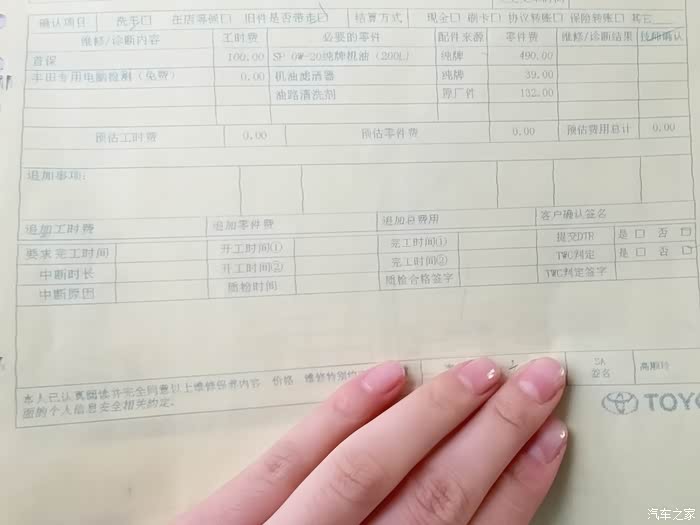 确认项目 洗车□ 在店等候□ 旧件是否带走□ 结算方式 现金□ 刷卡□ 协议转账□ 保险转账□ 其它
维修/诊断内容 工时费 必要的零件 配件来源 零件费 维修/诊断结果 技师确认
首保 100.00 SP 0W-20纯牌机油（200L） 纯牌 490.00
丰田专用电脑检测（免费） 0.00 机油滤清器 纯牌 39.00
油路清洗剂 原厂件 132.00
预估工时费 0.00 预估零件费 0.00 预估费用总计 0.00
追加事项:
追加工时费 追加零件费 追加总费用 客户确认签名
要求完工时间 开工时间① 完工时间① 提交DTR 是 □ 否 □
中断时长 开工时间② 完工时间② TWC判定 是 □ 否 □
中断原因 质检时间 质检合格签字 TWC判定签字
本人已认真阅读并完全同意以上维修保养内容 价格 维修特别约
面的个人信息安全相关约定。
SA
签名
TOYO
汽车之家